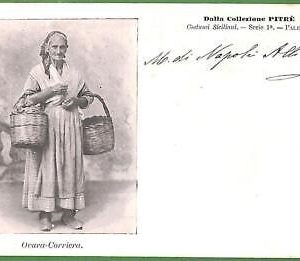 Dalla Collezione PITRÈ
Costumi Siciliani. — Serie 1ª. — PALE
M. di Napoli All
Ovara-Corriera.